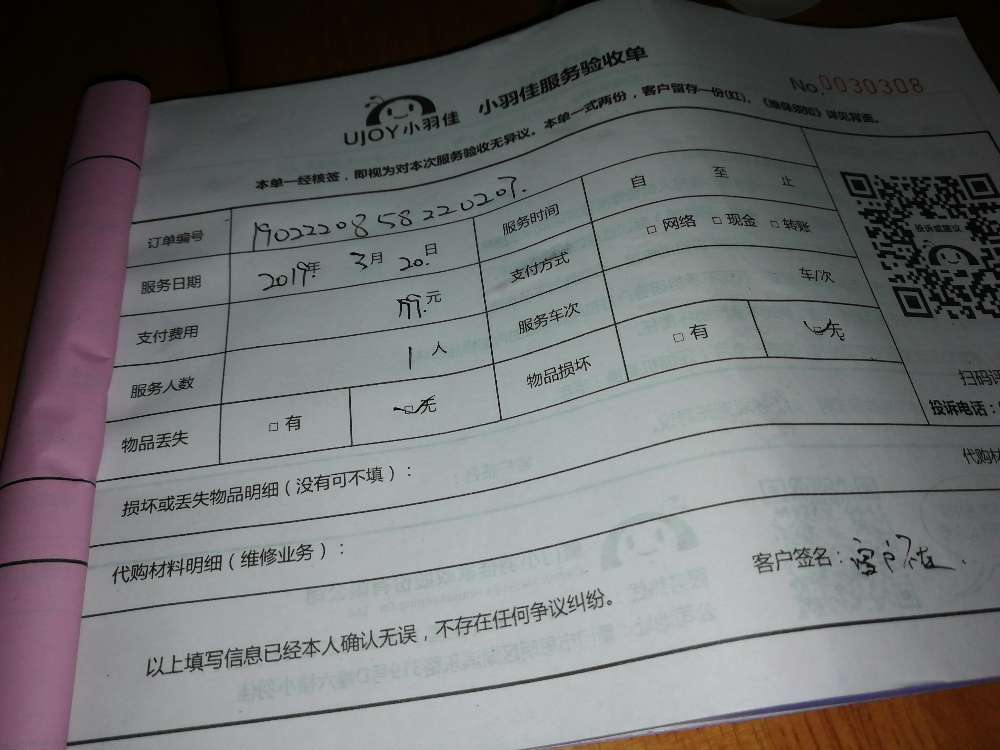 UJOY小羽佳 小羽佳服务验收单 No.0030308
本单一经核签，即视为对本次服务验收无异议。本单一式两份，客户留存一份(红)。《维保须知》详见背面。
订单编号 1902220858220207. 服务时间 自 至 止
服务日期 2019年 3月 20.日 支付方式 □ 网络 □ 现金 □ 转账
支付费用 元 服务车次 车/次
服务人数 1 人 物品损坏 □ 有 □ 无
物品丢失 □ 有 □ 无
投诉或建议
扫码
投诉电话：
损坏或丢失物品明细（没有可不填）：
代购材料明细（维修业务）：
代购材
以上填写信息已经本人确认无误，不存在任何争议纠纷。
客户签名：